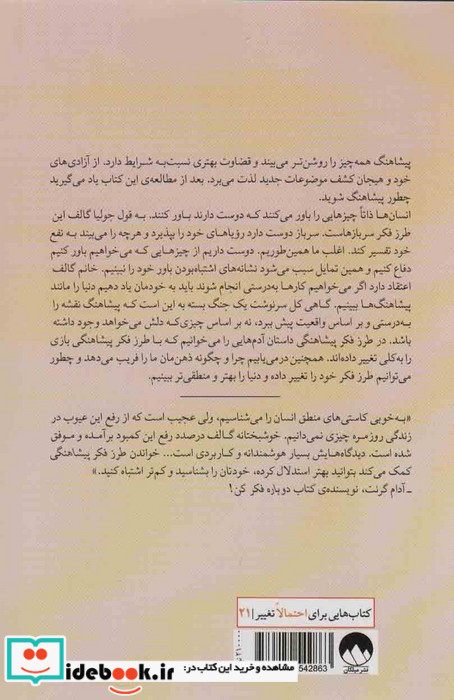 پیشاهنگ همه‌چیز را روشن‌تر می‌بیند و قضاوت بهتری نسبت‌به شرایط دارد. از آزادی‌های
خود و هیجان کشف موضوعات جدید لذت می‌برد. بعد از مطالعه‌ی این کتاب یاد می‌گیرید
چطور پیشاهنگ شوید.
انسان‌ها ذاتاً چیزهایی را باور می‌کنند که دوست دارند باور کنند. به قول جولیا گالف این
طرز فکر سربازهاست. سرباز دوست دارد رؤیاهای خود را بپذیرد و هرچه را می‌بیند به نفع
خود تفسیر کند. اغلب ما همین‌طوریم. دوست داریم از چیزهایی که می‌خواهیم باور کنیم
دفاع کنیم و همین تمایل سبب می‌شود نشانه‌های اشتباه‌بودن باور خود را نبینیم. خانم گالف
اعتقاد دارد اگر می‌خواهیم کارها به‌درستی انجام شوند باید به خودمان یاد دهیم دنیا را مانند
پیشاهنگ‌ها ببینیم. گاهی کل سرنوشت یک جنگ بسته به این است که پیشاهنگ نقشه را
به‌درستی و بر اساس واقعیت پیش ببرد، نه بر اساس چیزی‌که دلش می‌خواهد وجود داشته
باشد. در طرز فکر پیشاهنگی داستان آدم‌هایی را می‌خوانیم که با طرز فکر پیشاهنگی بازی
را به‌کلی تغییر داده‌اند. همچنین درمی‌یابیم چرا و چگونه ذهن‌مان ما را فریب می‌دهد و چطور
می‌توانیم طرز فکر خود را تغییر داده و دنیا را بهتر و منطقی‌تر ببینیم.
«به‌خوبی کاستی‌های منطق انسان را می‌شناسیم، ولی عجیب است که از رفع این عیوب در
زندگی روزمره چیزی نمی‌دانیم. خوشبختانه گالف درصدد رفع این کمبود برآمده و موفق
شده است. دیدگاه‌هایش بسیار هوشمندانه و کاربردی است... خواندن طرز فکر پیشاهنگی
کمک می‌کند بتوانید بهتر استدلال کرده، خودتان را بشناسید و کم‌تر اشتباه کنید.»
ـ آدام گرنت، نویسنده‌ی کتاب دوباره فکر کن!
کتاب‌هایی برای احتمالاً تغییر | ۲۱
542863
نشر میلکان
مشاهده و خرید این کتاب در:
idebook.ir